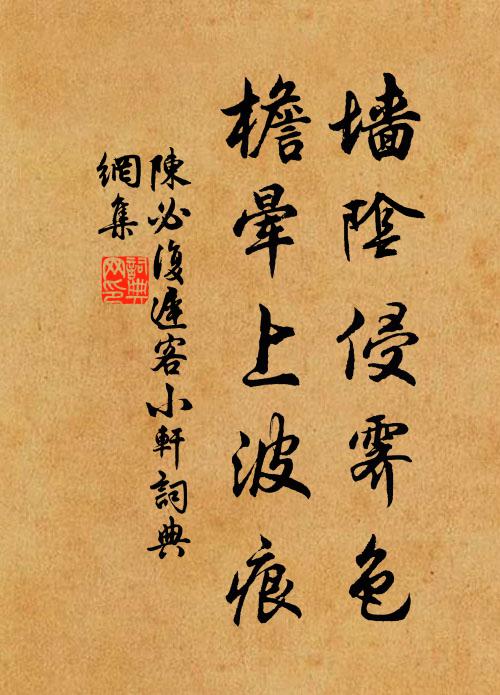 墙陰侵霽色
檐暈上波痕
陳必復遲客小軒詞典
網集
詞典網印